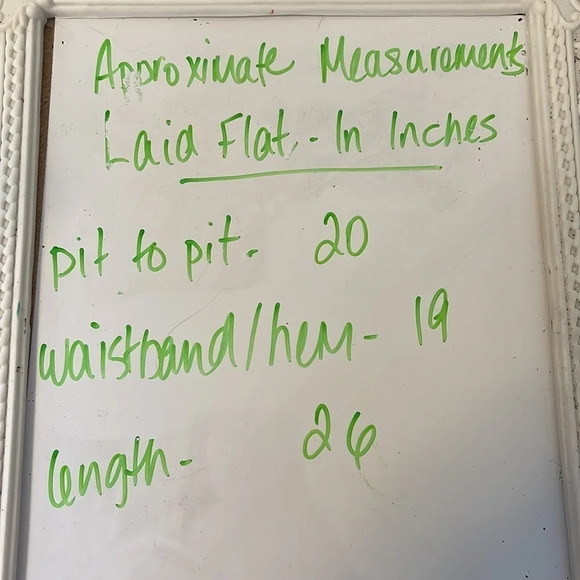 Approximate Measurements
Laid Flat. - In Inches
pit to pit. 20
waistband/hem - 19
length - 26